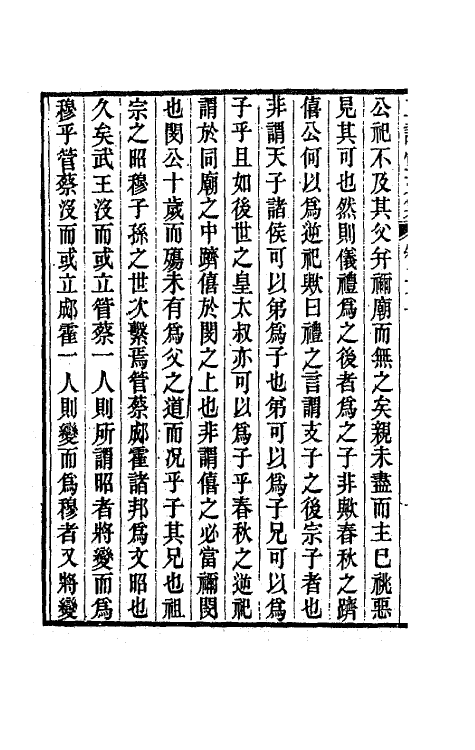 公祀不及其父弁禰廟而無之矣親未盡而主已祧惡
見其可也然則儀禮爲之後者爲之子非歟春秋之躋
僖公何以爲逆祀歟曰禮之言謂支子之後宗子者也
非謂天子諸侯可以弟爲子也弟可以爲子兄可以爲
子乎且如後世之皇太叔亦可以爲子乎春秋之逆祀
謂於同廟之中躋僖於閔之上也非謂僖之必當禰閔
也閔公十歲而殤未有爲父之道而况乎子其兄也祖
宗之昭穆子孫之世次繫焉管蔡郕霍諸邦爲文昭也
久矣武王沒而或立管蔡一人則所謂昭者將變而爲
穆乎管蔡沒而或立郕霍一人則變而爲穆者又將變